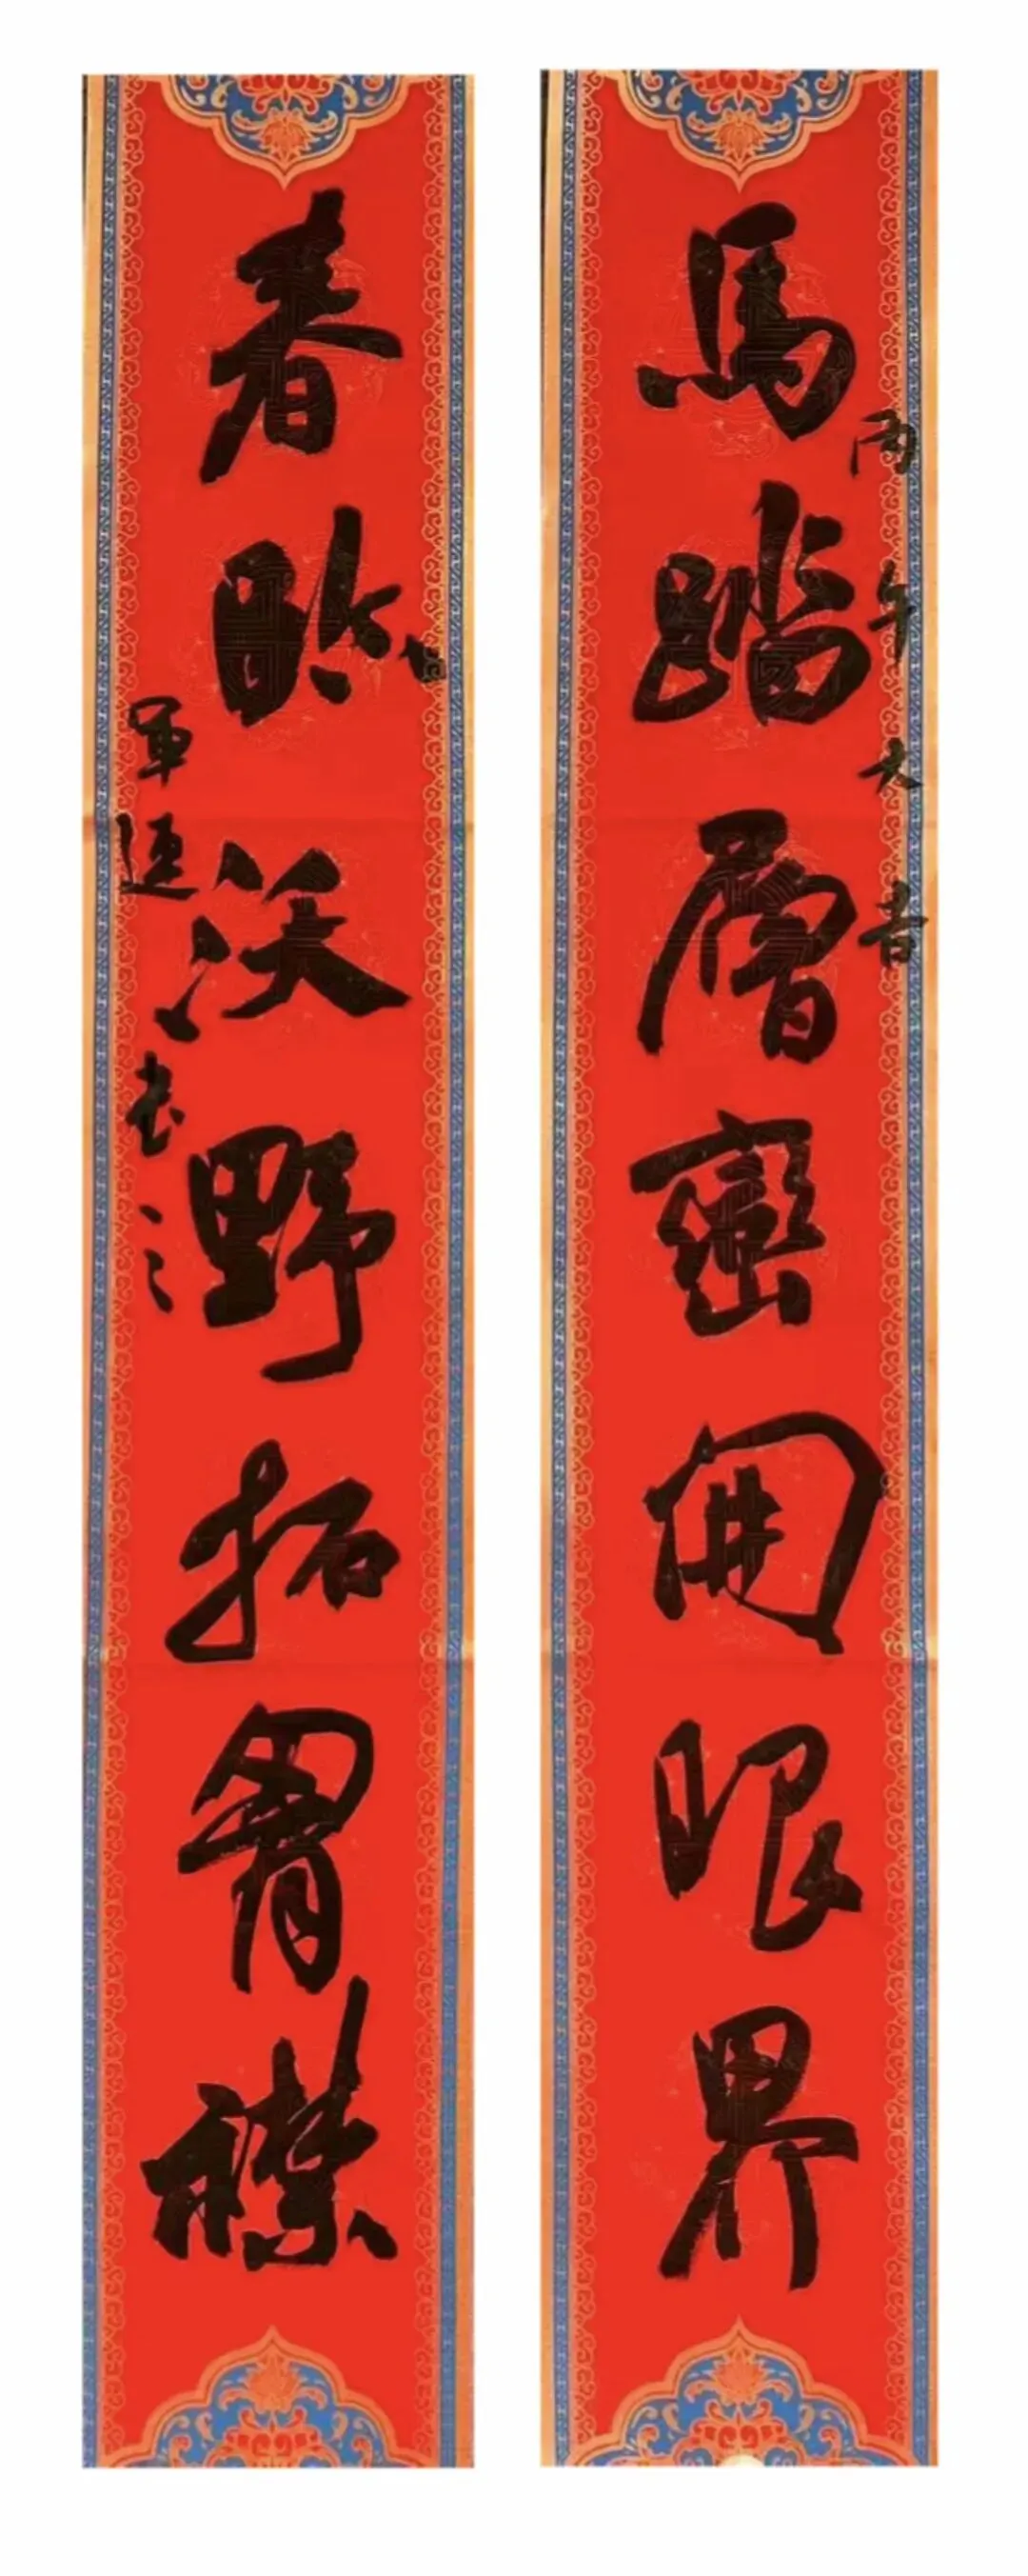 馬踏層巒開眼界
丙午大吉
春盼沃野拓胷襟
軍 書